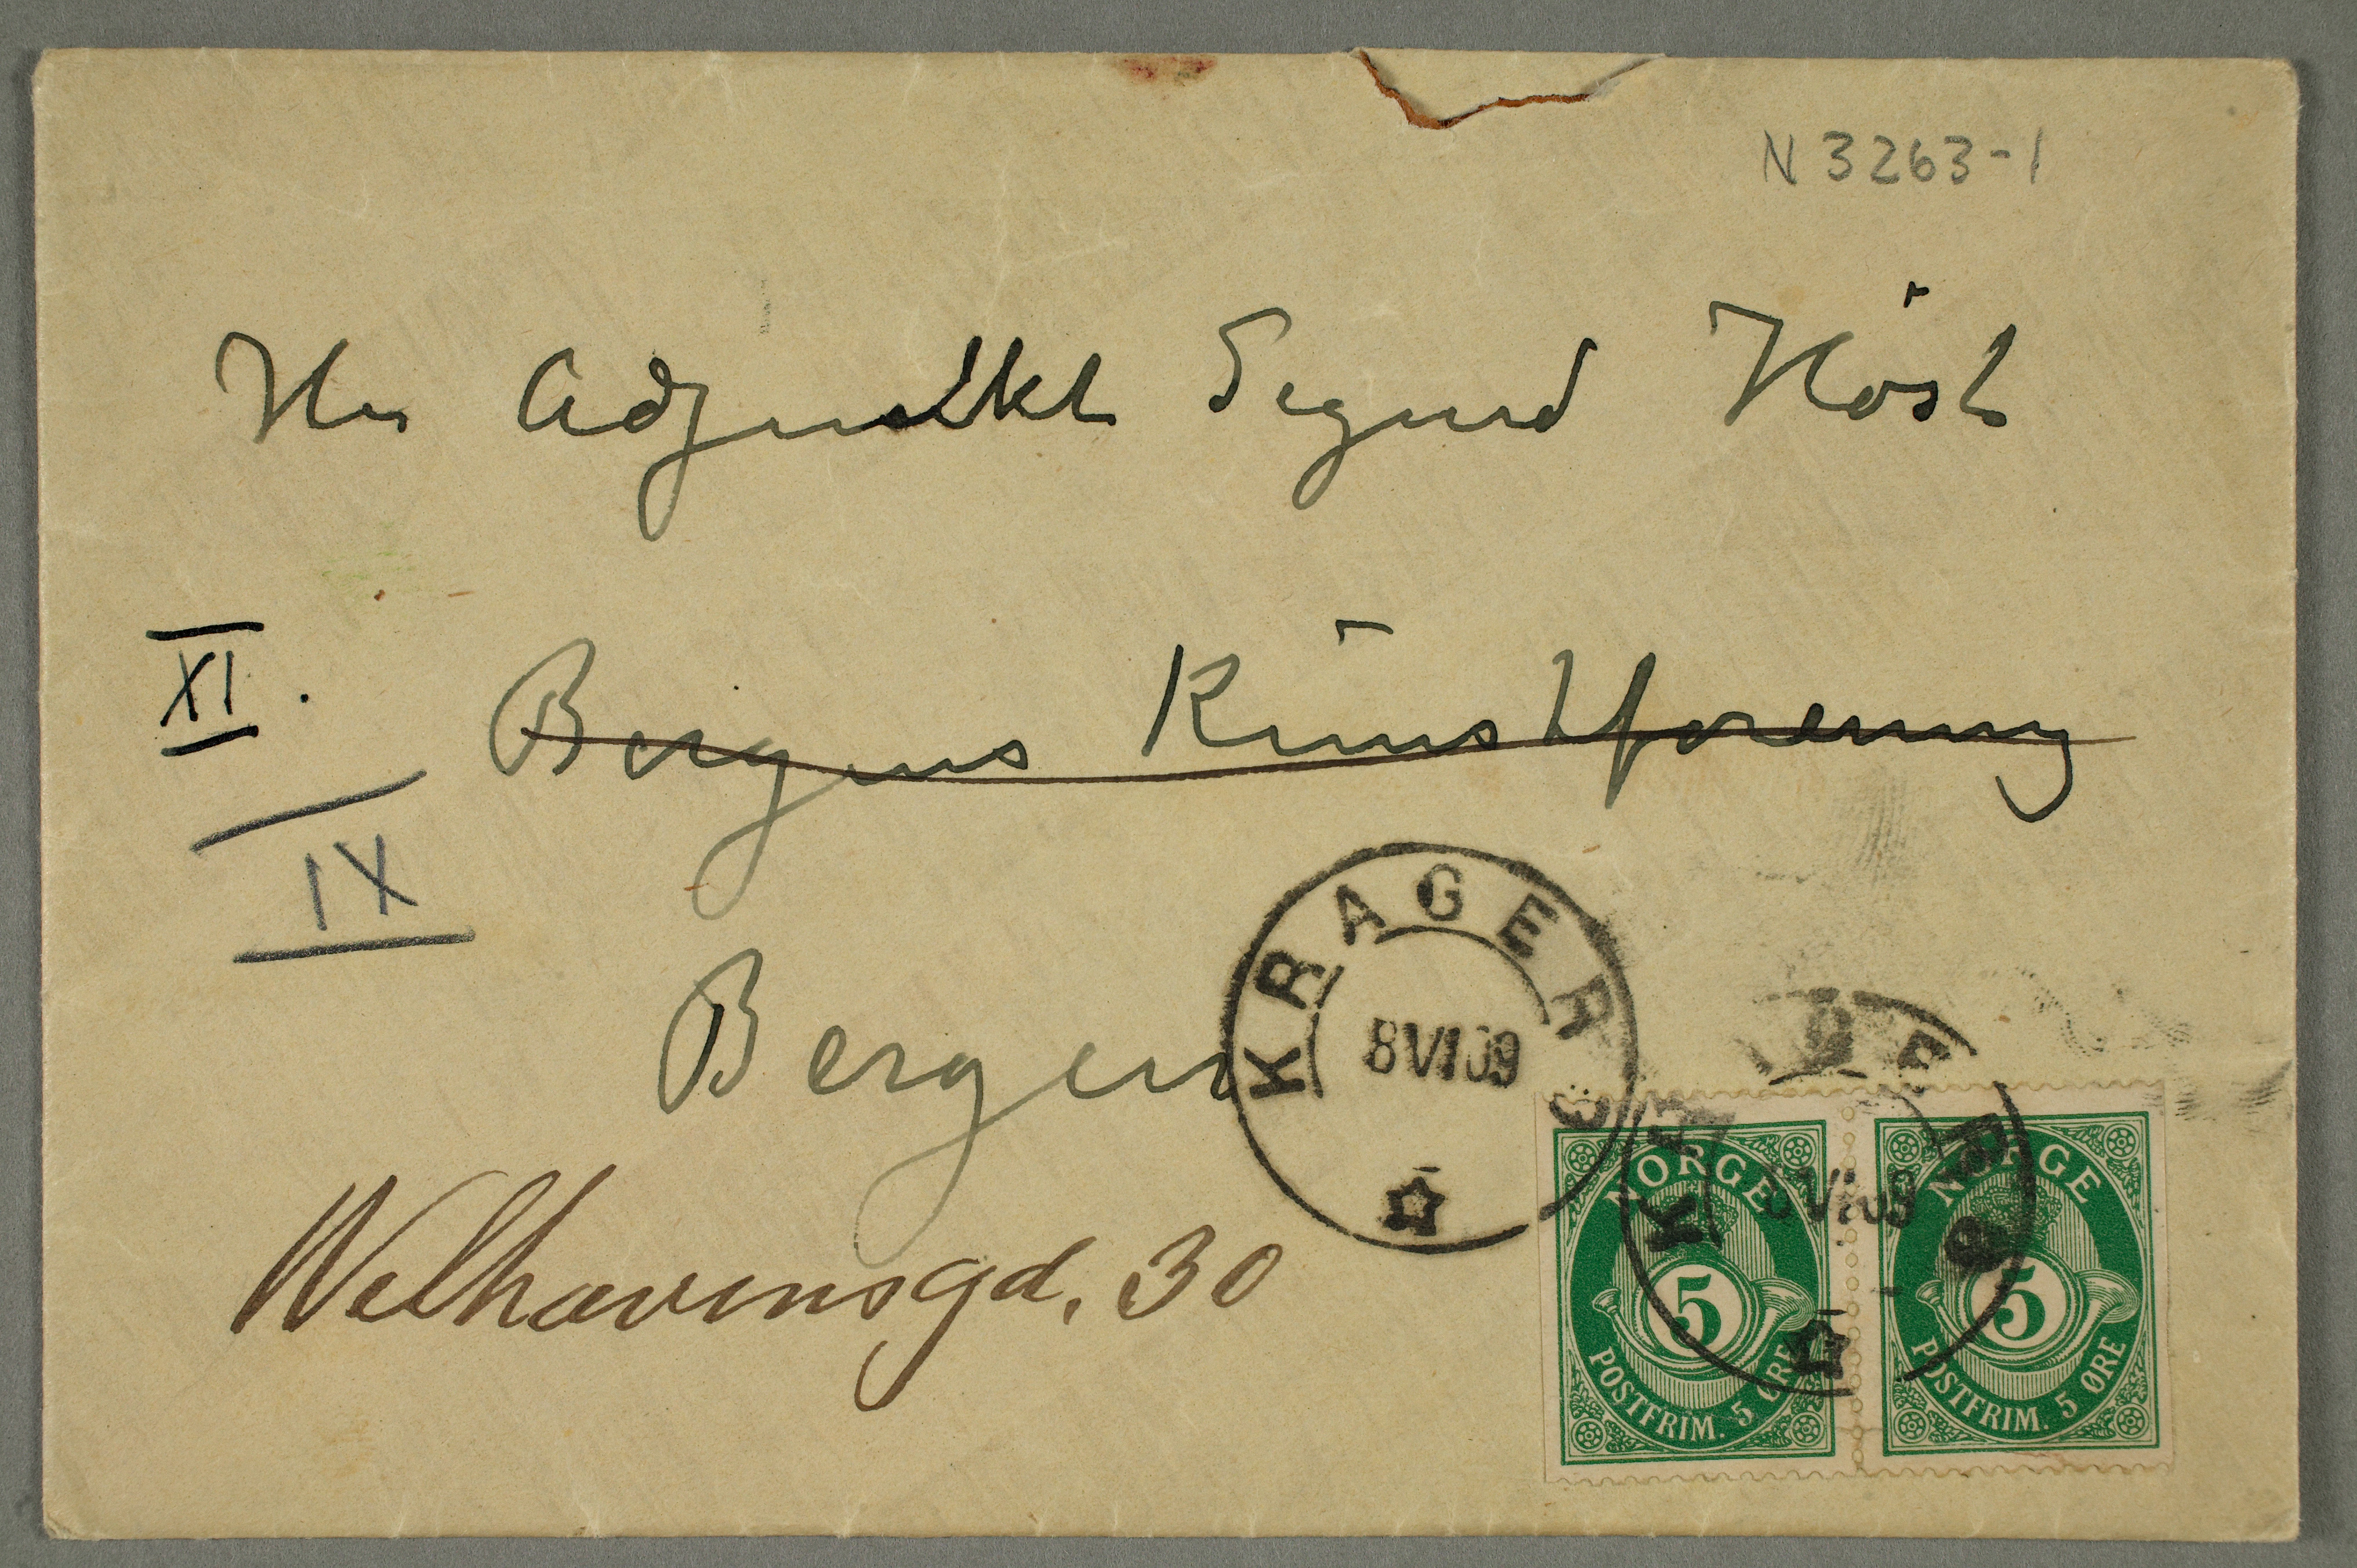 N 3263-1
Hr Adjunkt Sigurd Höst
XI.
Bergens Kunstforening
IX
Bergen
KRAGERØ
8 VI 09
KRAGERØ
8 VI 09
Welhavensgd. 30
NORGE
5
POSTFRIM. 5 ØRE
NORGE
5
POSTFRIM. 5 ØRE